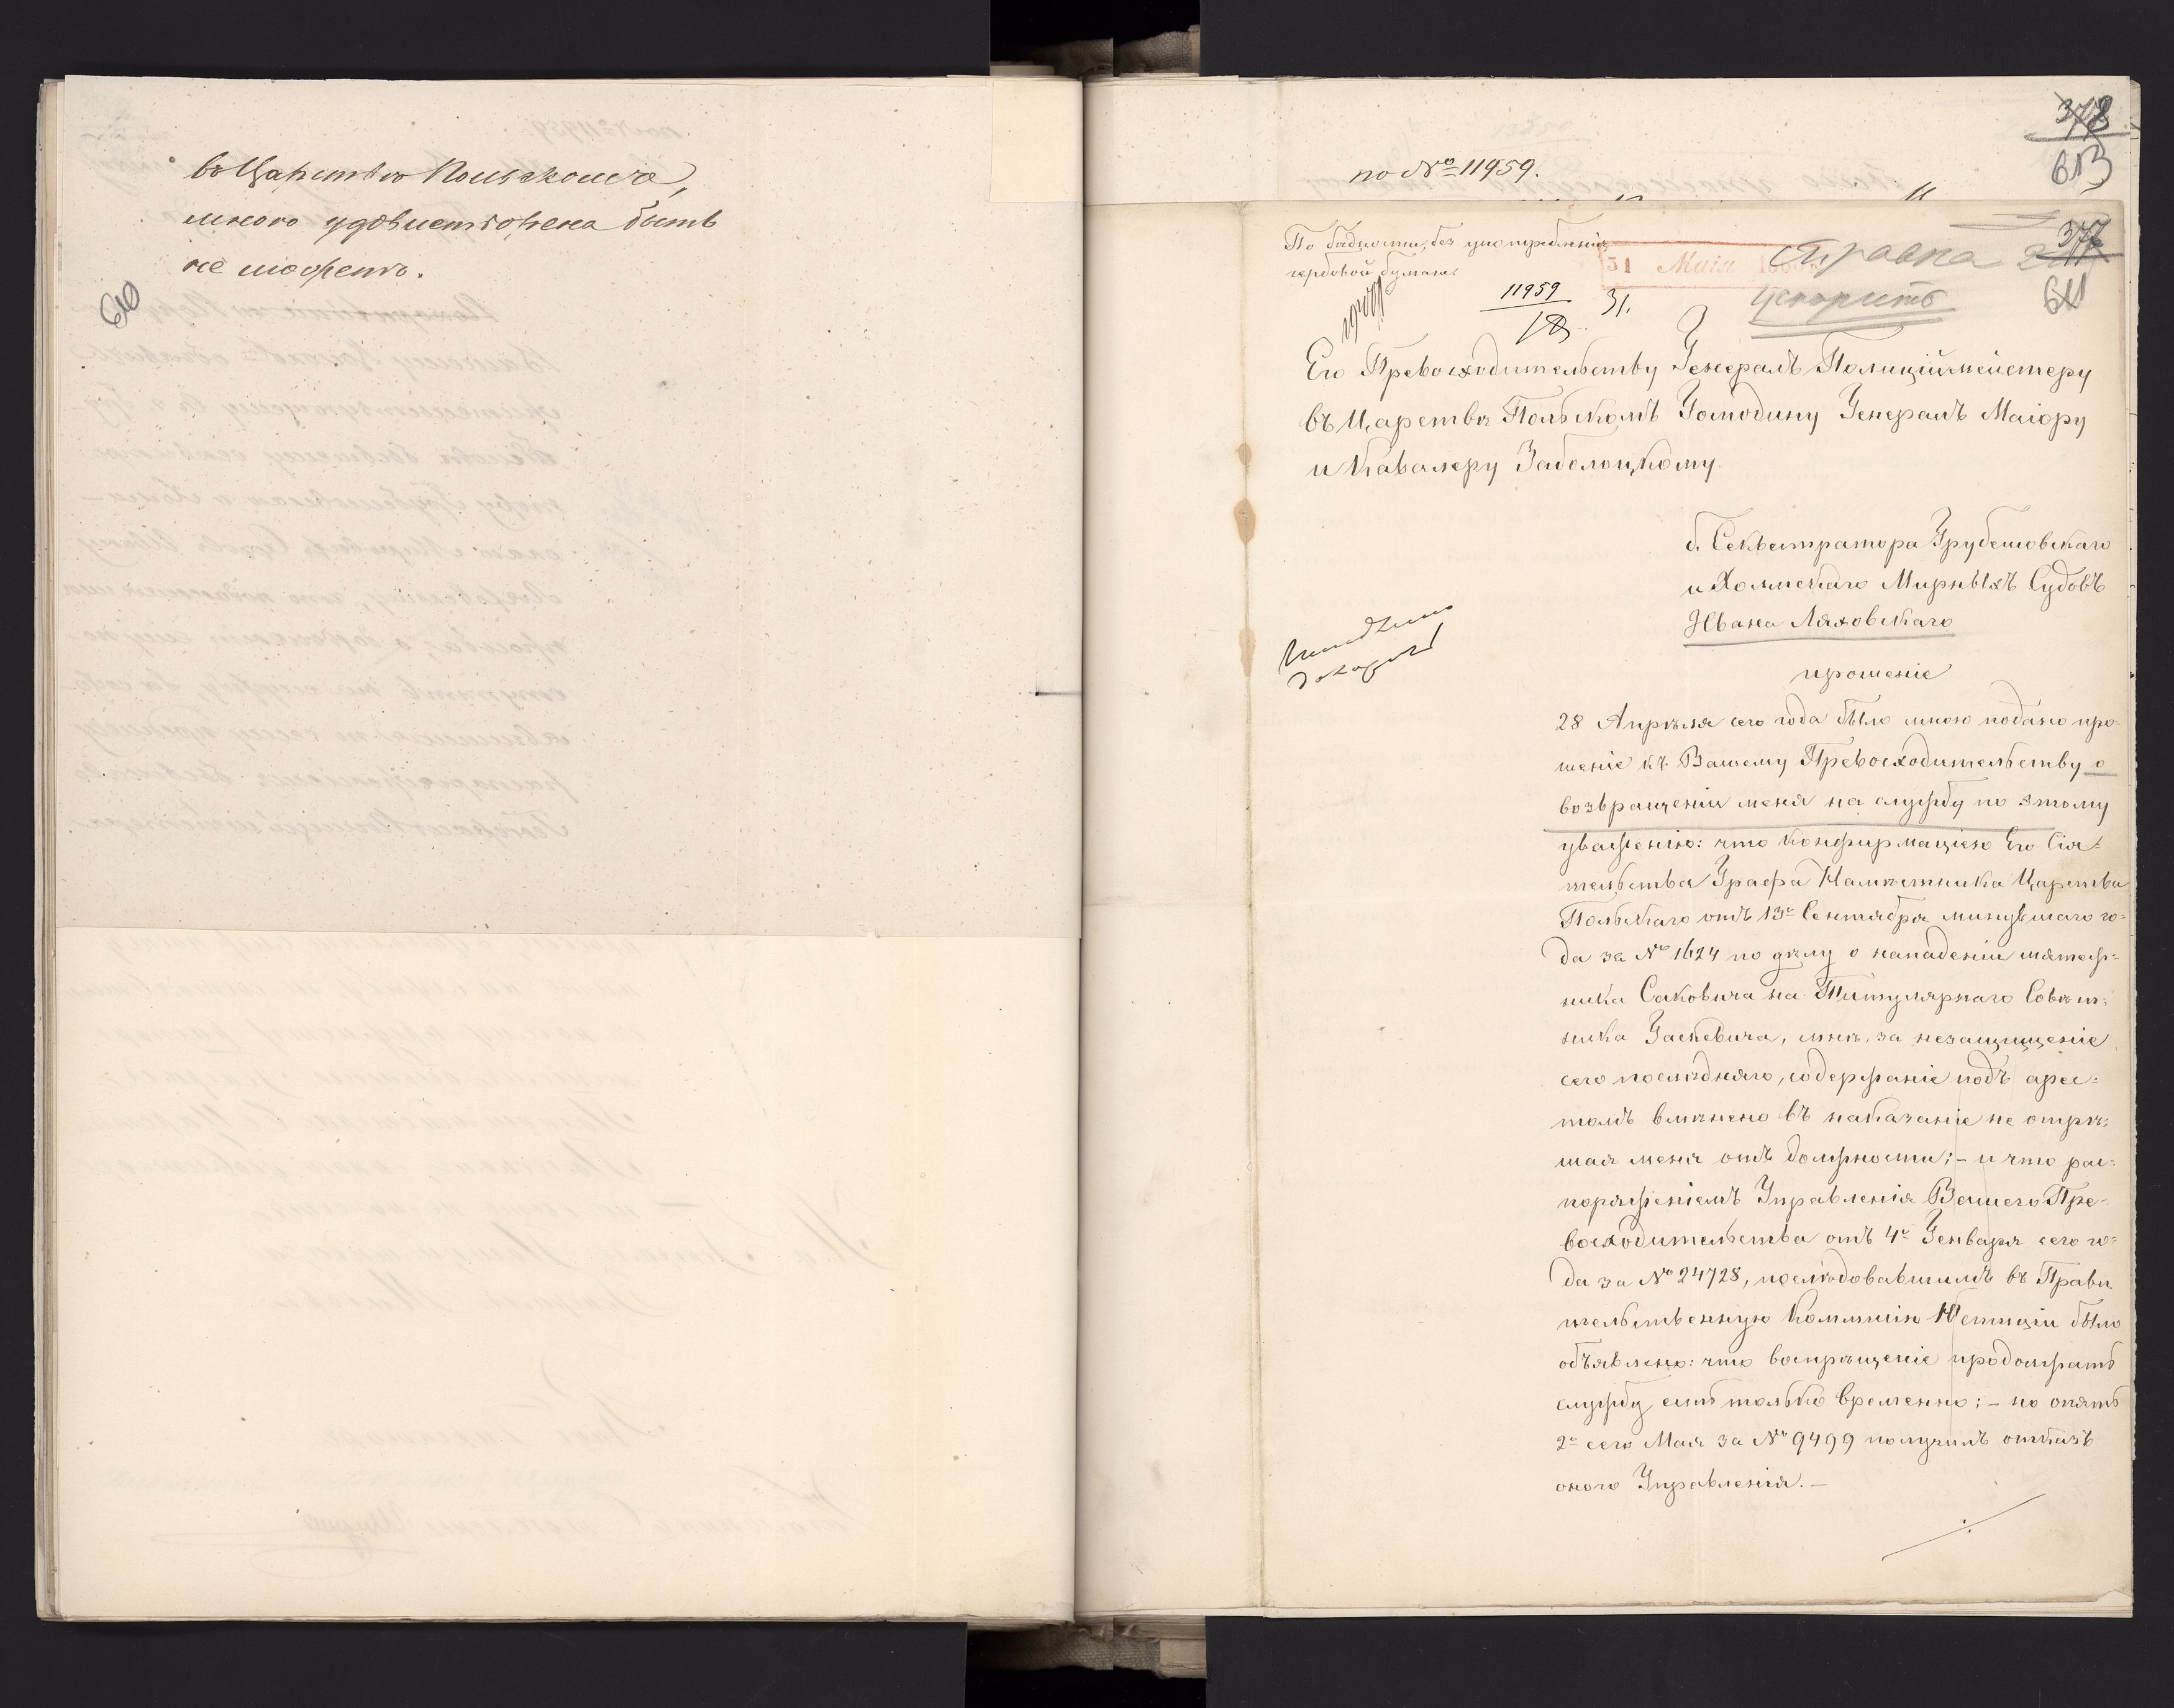 въ Царствѣ Польскомъ,
мною удовлетворена быть
не можетъ.
610
378
613
по № 11959.
По бѣдности, безъ употребленія
гербовой бумаги.
31 Мая
справка
377
611
ускорить
11959
18
31.
Его Превосходительству Генералъ Полиціймейстеру
въ Царствѣ Польскомъ Господину Генералъ Маіору
и Кавалеру Заболоцкому.
б. Секвестратора Грубешовскаго
и Холмскаго Мирныхъ Судовъ
Ивана Ляховскаго
прошеніе
28 Апрѣля сего года было мною подано про-
шеніе къ Вашему Превосходительству о
возвращеніи меня на службу по этому
уваженію: что конфирмаціею Его Сія-
тельства Графа Намѣстника Царства
Польскаго отъ 13го Сентября минувшаго го=
да за № 1624 по дѣлу о нападеніи мятеж=
ника Саковича на Титулярнаго Совѣт=
ника Гаскевича, мнѣ, за незащищеніе
сего послѣдняго, содержаніе подъ арес=
томъ вмѣнено въ наказаніе не отрѣ=
шая меня отъ должности; – и что рас=
поряженіемъ Управленія Вашего Пре-
восходительства отъ 4го Генваря сего го=
да за № 24728, послѣдовавшимъ въ Прави
тельственную Коммисію Юстиціи было
объявлено: что воспрещеніе продолжать
службу есть только временно; – но опять
2го сего Мая за № 9499 получилъ отказъ
оного Управленія. –